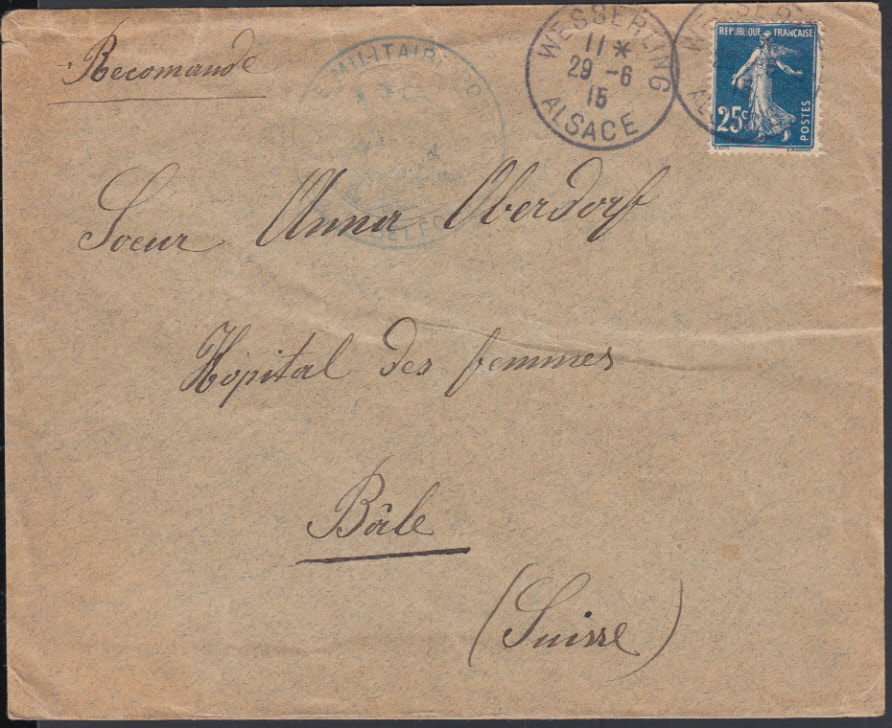 Recomande
MILITAIRE
WESSERLING
11 *
29 -6
15
ALSACE
REPUBLIQUE FRANÇAISE
25c
POSTES
Soeur Anna Oberdorf
Hôpital des femmes
Bâle
(Suisse)